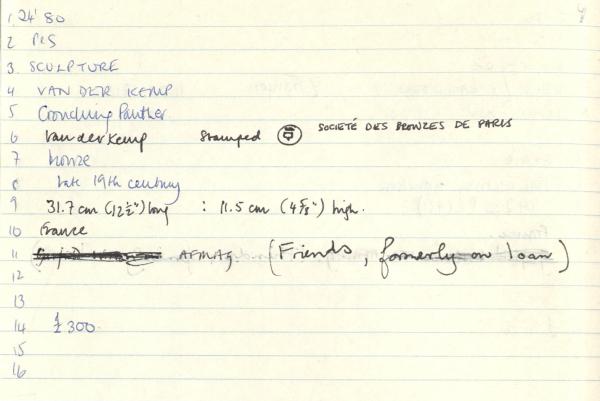 1. 24'80
2 P&S
3. SCULPTURE
4 VAN DER KEMP
5 Crouching Panther
6 Van der Kemp Stamped SOCIETÉ DES BRONZES DE PARIS
7 bronze
8 late 19th century
9 31.7 cm (12½") long : 11.5 cm (4⅝") high.
10 France
11 AFMAG (Friends, formerly on loan)
12
13
14 £300.
15
16